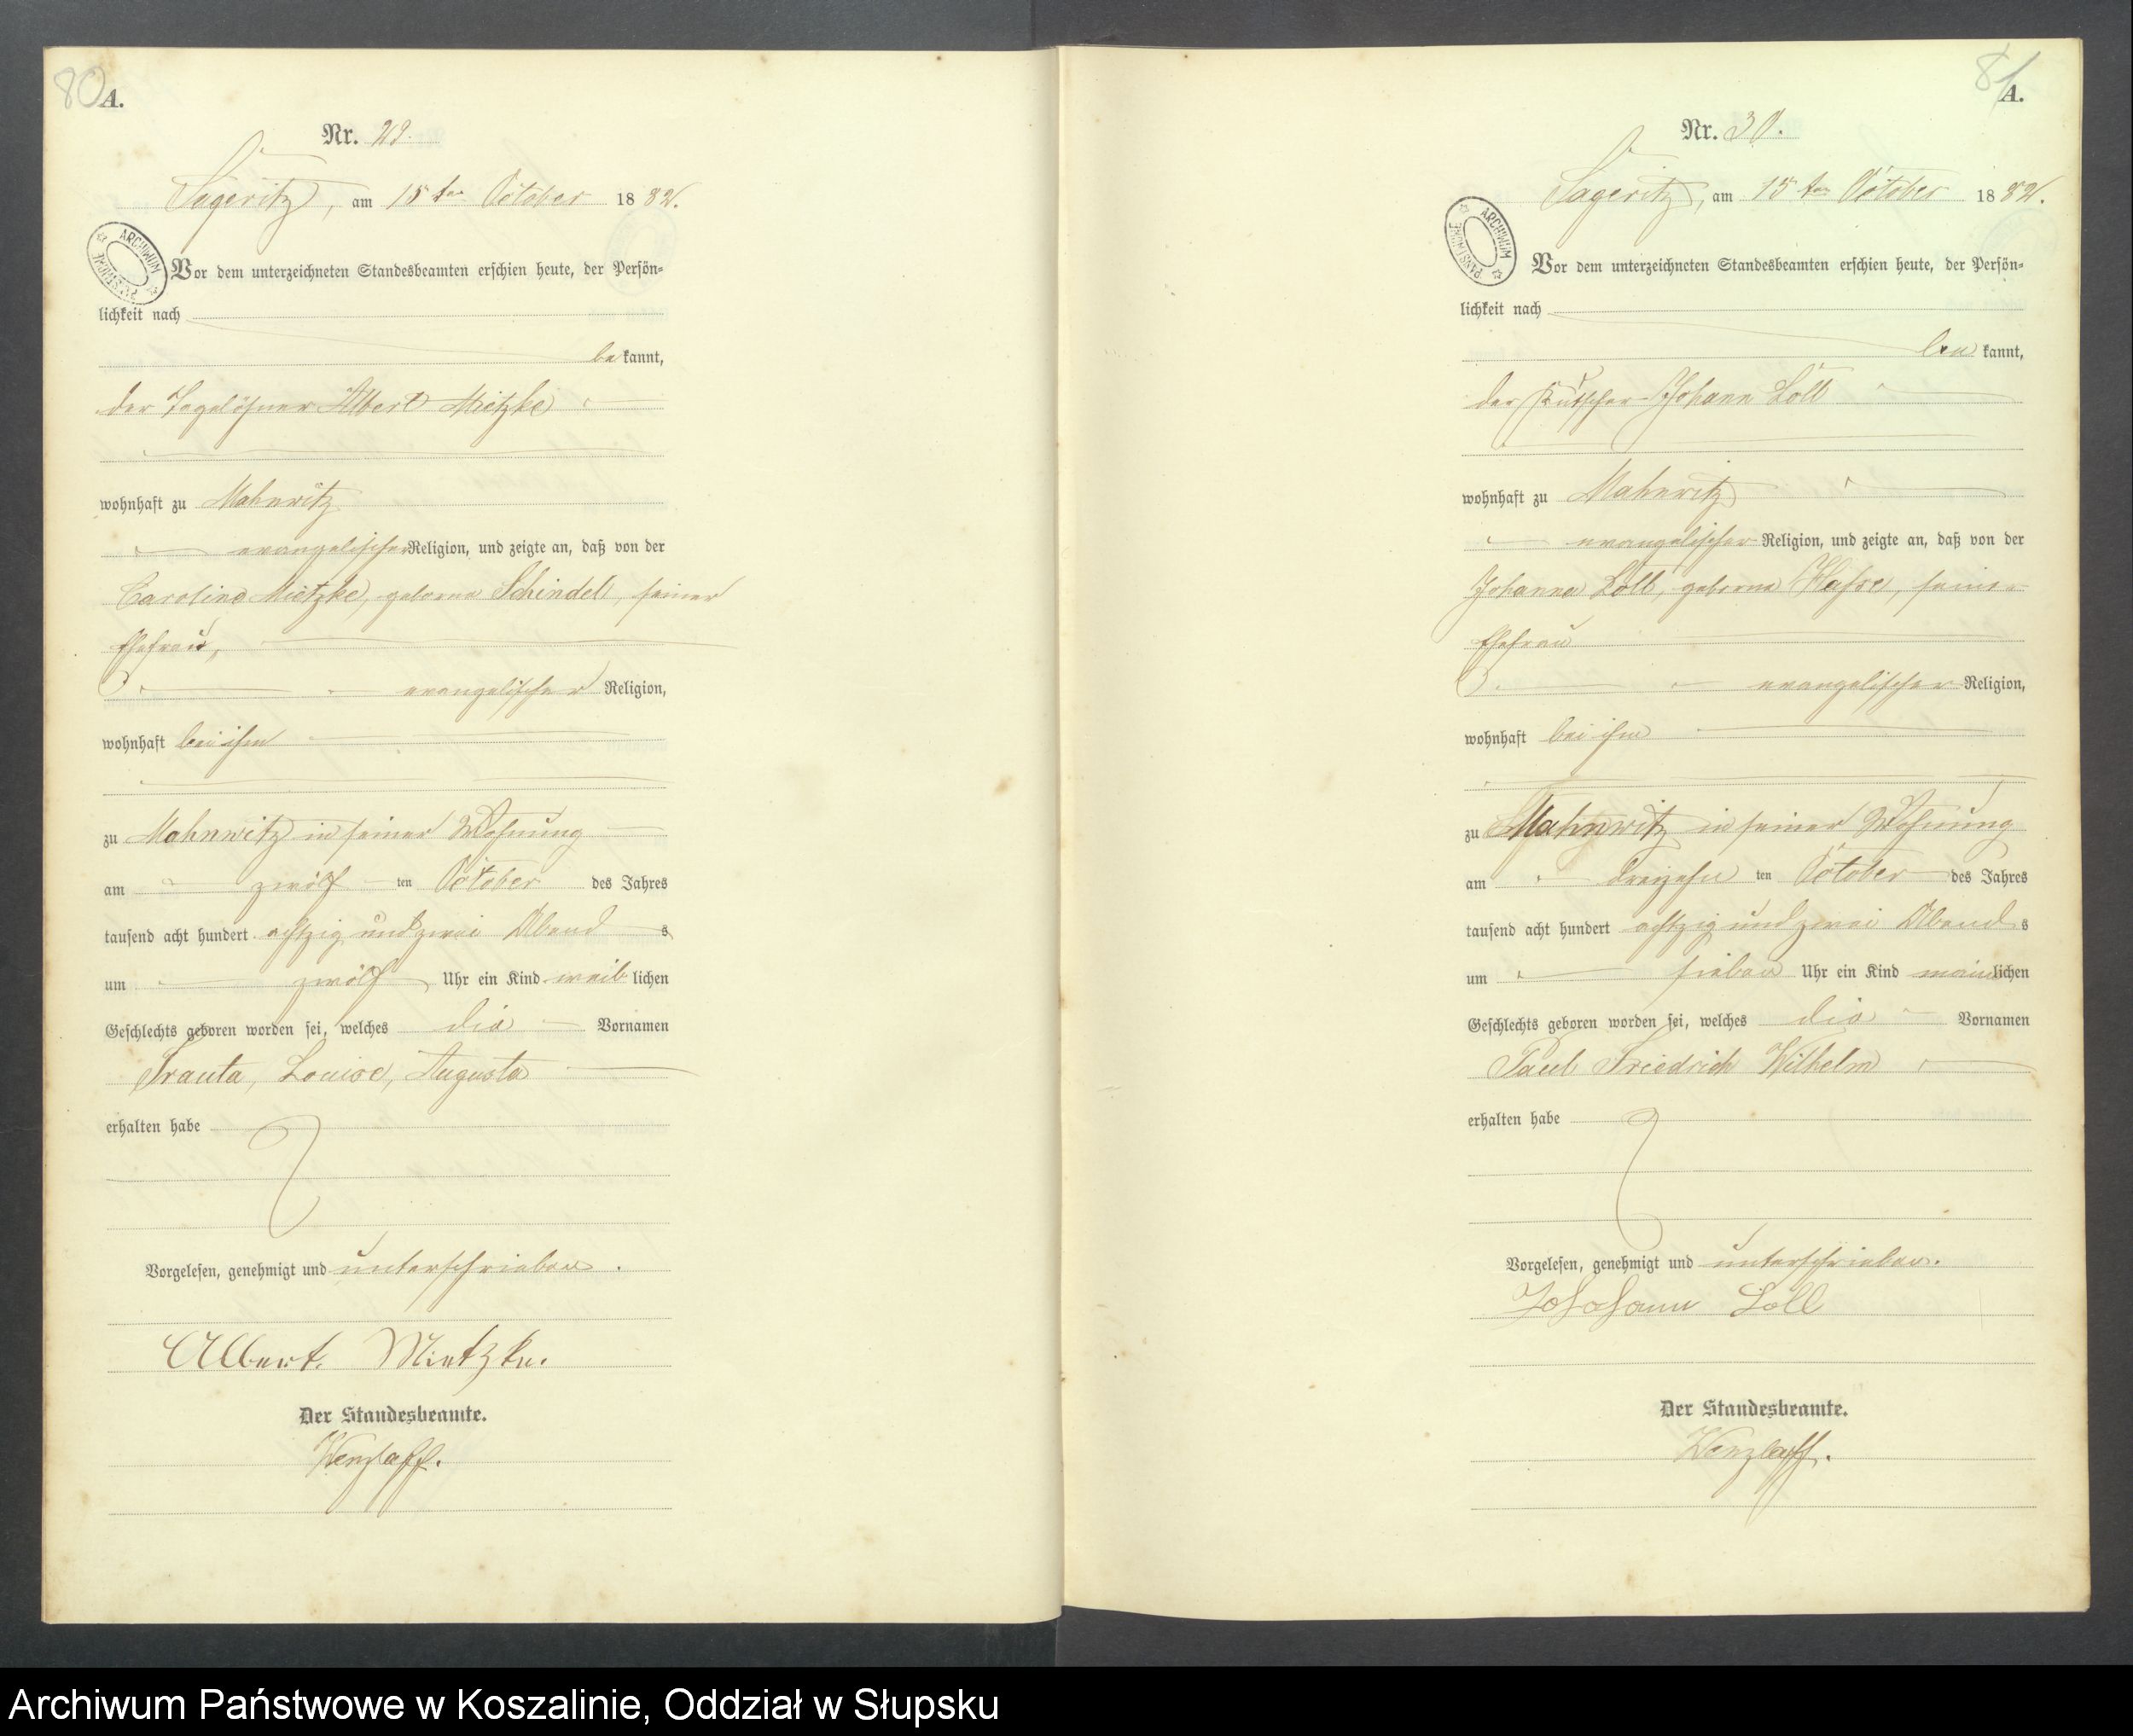 80
A.
Nr. 29.
Sageritz, am 15ten October 1882.
ARCHIWUM PAŃSTWOWE
Vor dem unterzeichneten Standesbeamten erschien heute, der Persön-
lichkeit nach
bekannt,
der Tagelöhner Albert Mietzke
wohnhaft zu Mahnwitz
evangelischer Religion, und zeigte an, daß von der
Caroline Mietzke, geborne Schindel, seiner
Ehefrau,
evangelischer Religion,
wohnhaft bei ihm
zu Mahnwitz in seiner Wohnung
am zwölf ten October des Jahres
tausend acht hundert achtzig und zwei Abend s
um zwölf Uhr ein Kind weib lichen
Geschlechts geboren worden sei, welches die Vornamen
Trauta, Louise, Augusta
erhalten habe
Vorgelesen, genehmigt und unterschrieben.
Albert. Mietzke.
Der Standesbeamte.
Wenzlaff.
81
A.
Nr. 30.
Sageritz, am 15ten October 1882.
ARCHIWUM PAŃSTWOWE
Vor dem unterzeichneten Standesbeamten erschien heute, der Persön-
lichkeit nach
be kannt,
der Kutscher Johann Löll
wohnhaft zu Mahnwitz
evangelischer Religion, und zeigte an, daß von der
Johanna Löll, geborne seiner
Ehefrau
evangelischer Religion,
wohnhaft bei ihm
zu Mahnwitz in seiner Wohnung
am dreizehn ten October des Jahres
tausend acht hundert achtzig und zwei Abend s
um sieben Uhr ein Kind männlichen
Geschlechts geboren worden sei, welches die Vornamen
Paul Friedrich Wilhelm
erhalten habe
Vorgelesen, genehmigt und unterschrieben.
Löll
Der Standesbeamte.
Wenzlaff.
Archiwum Państwowe w Koszalinie, Oddział w Słupsku